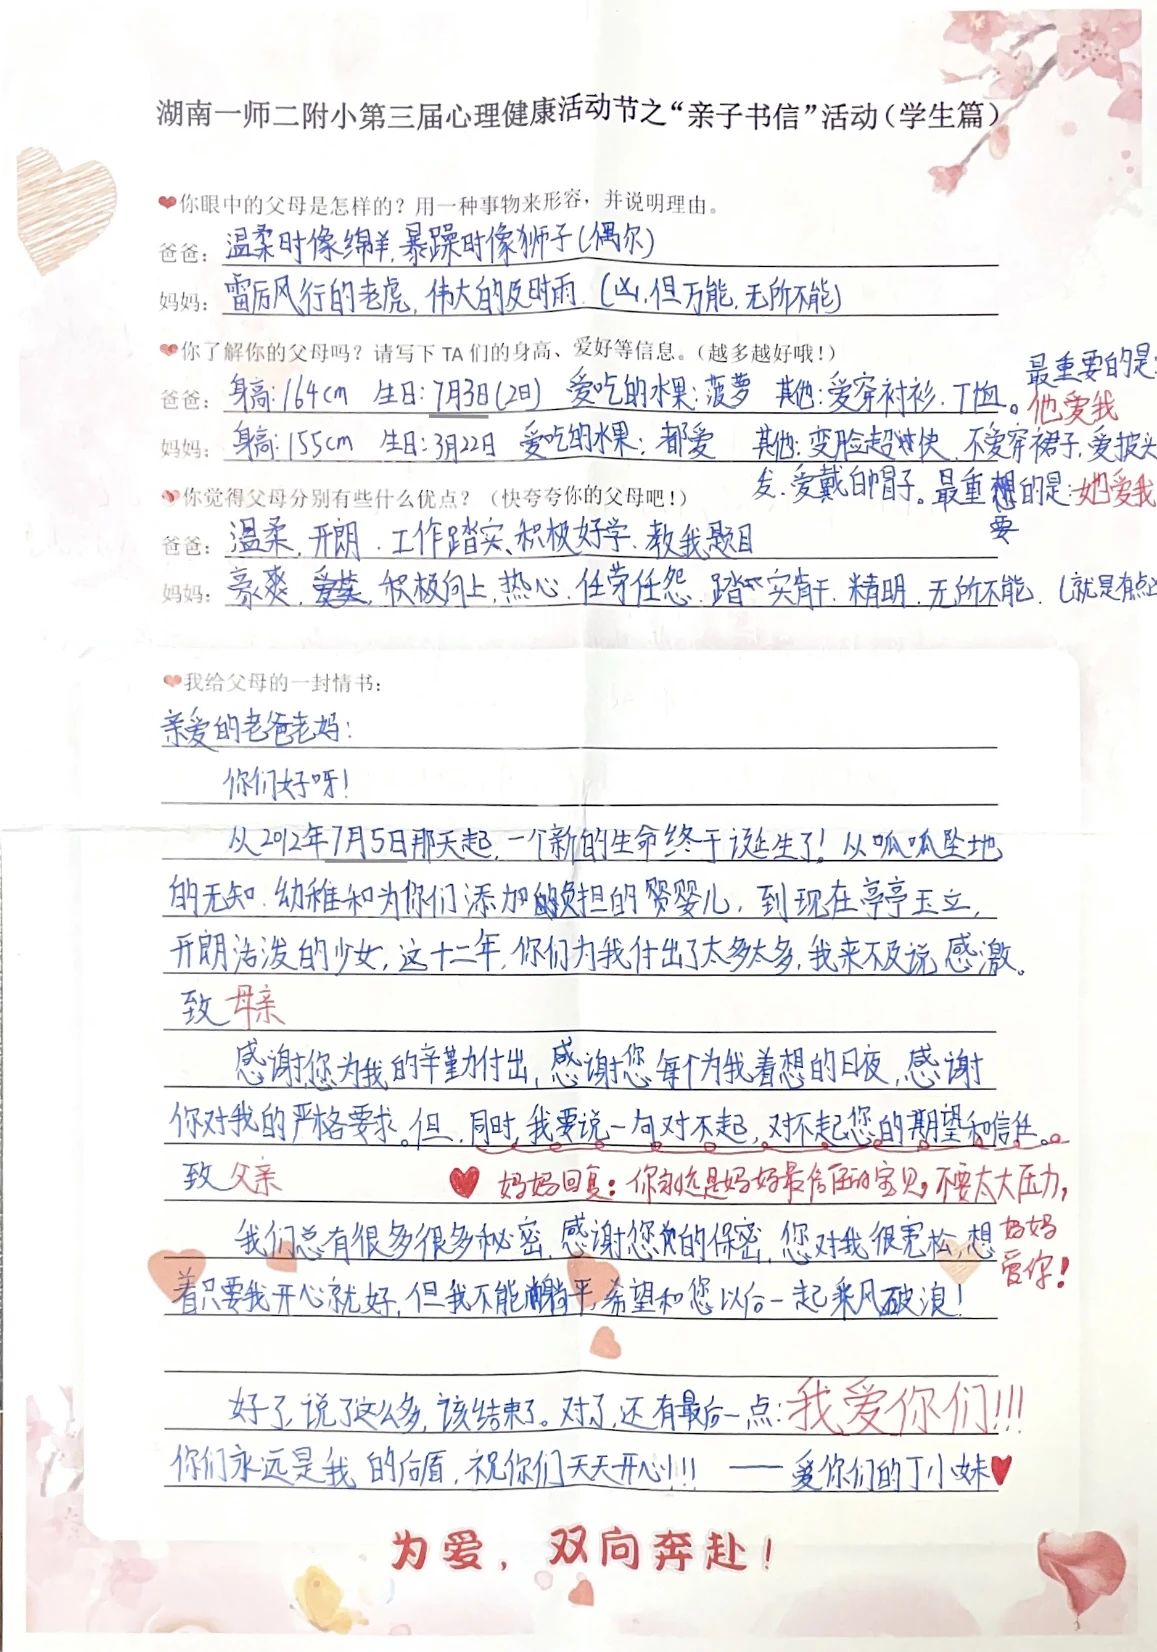 湖南一师二附小第三届心理健康活动节之“亲子书信”活动(学生篇)
你眼中的父母是怎样的？用一种事物来形容，并说明理由。
爸爸：温柔时像绵羊,暴躁时像狮子(偶尔)
妈妈：雷厉风行的老虎,伟大的及时雨.(凶,但万能,无所不能)
你了解你的父母吗？请写下TA们的身高、爱好等信息。(越多越好哦！)
爸爸：身高:164cm 生日:7月3日(2日) 爱吃的水果:菠萝 其他:爱穿衬衫.T恤。最重要的是:他爱我
妈妈：身高:155cm 生日:3月22日 爱吃的水果:都爱 其他:变脸超快.不爱穿裙子,爱披头
发.爱戴白帽子。最重要的是:她爱我
你觉得父母分别有些什么优点？(快夸夸你的父母吧！)
爸爸：温柔,开朗.工作踏实、积极好学.教我题目
妈妈：豪爽,爱笑,积极向上,热心.任劳任怨.踏实肯干.精明.无所不能.(就是有点凶
我给父母的一封情书：
亲爱的老爸老妈:
你们好呀!
从2012年7月5日那天起,一个新的生命终于诞生了!从呱呱坠地
的无知.幼稚和为你们添加负担的婴儿,到现在亭亭玉立,
开朗活泼的少女,这十二年,你们为我付出了太多太多,我来不及说感激。
致母亲
感谢您为我的辛勤付出,感谢您每个为我着想的日夜,感谢
你对我的严格要求。但,同时,我要说一句对不起,对不起您的期望和信任。
致父亲 ♥妈妈回复:你永远是妈妈最信任的宝贝,不要太大压力,
妈妈
爱你!
我们总有很多很多秘密,感谢您的保密,您对我很宽松,想
着只要我开心就好,但我不能躺平,希望和您以后一起乘风破浪!
好了,说了这么多,该结束了。对了,还有最后一点:我爱你们!!!
你们永远是我的后盾,祝你们天天开心!!! ——爱你们的丁小妹♥
为爱，双向奔赴！